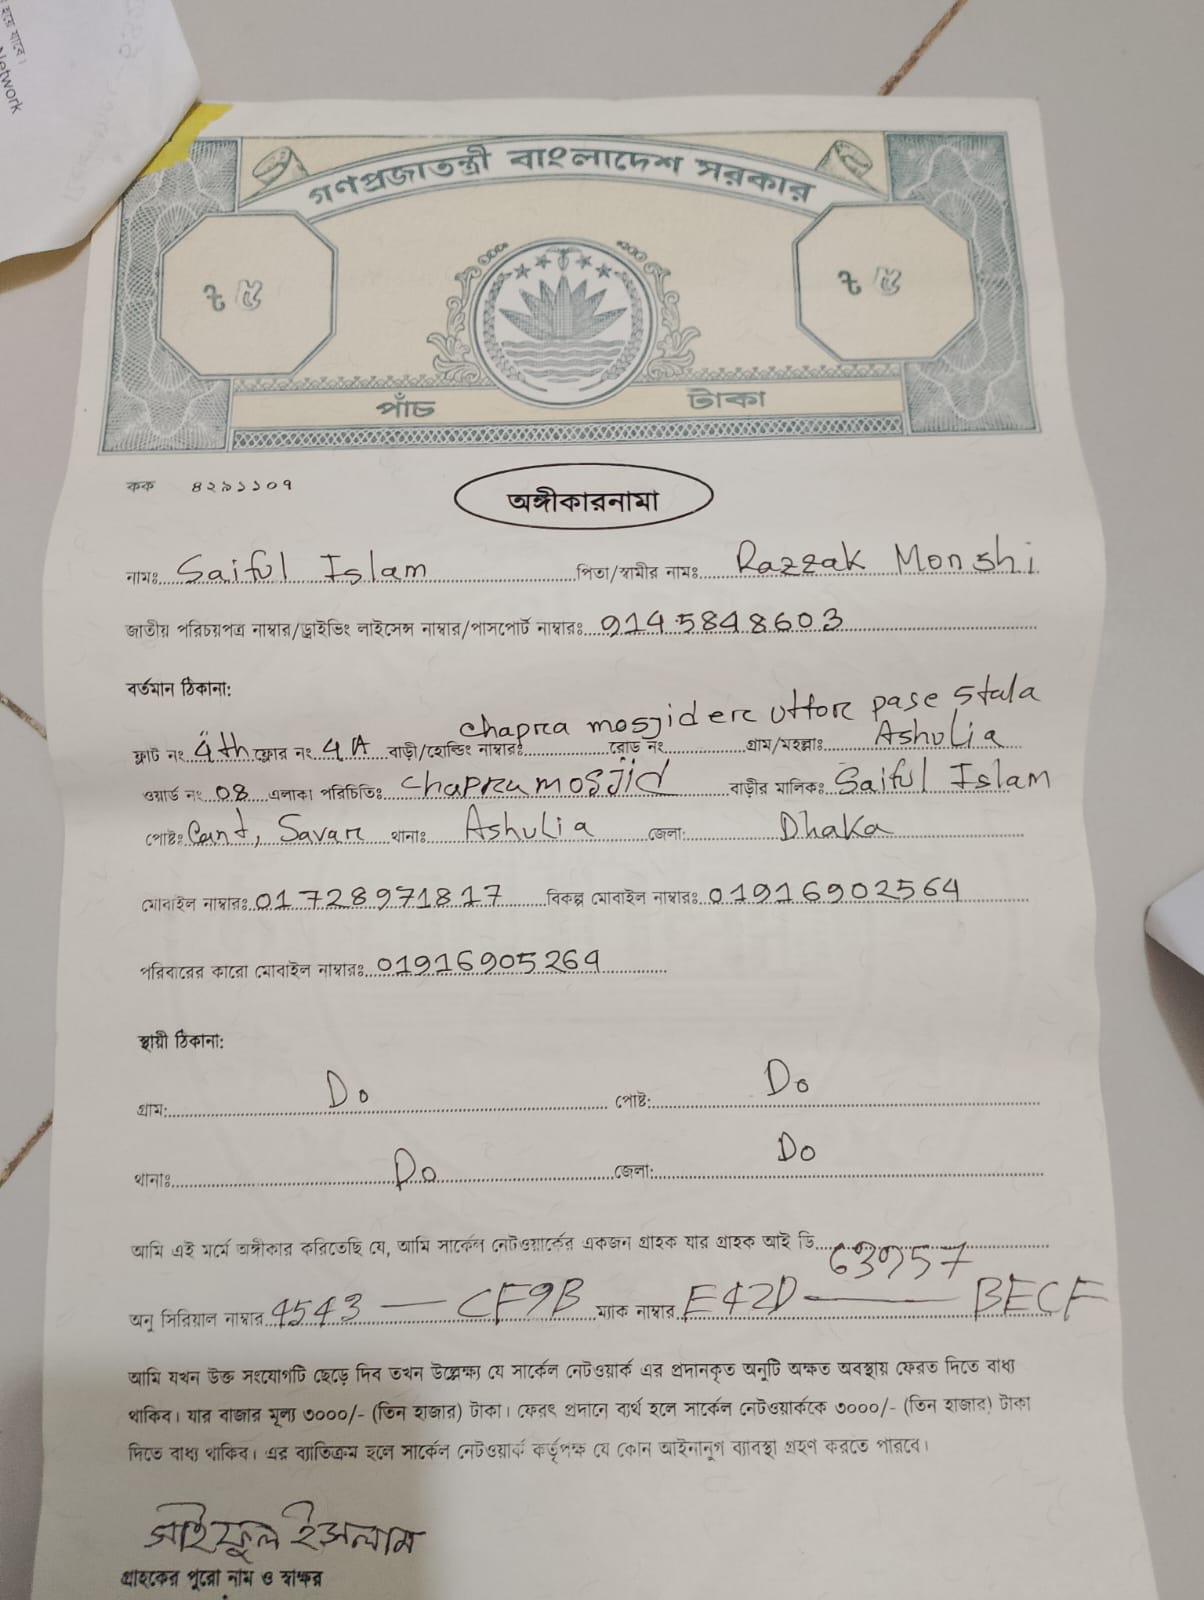 হয়ে যাবে।
Network
গণপ্রজাতন্ত্রী বাংলাদেশ সরকার
৳ ৫ ৳ ৫
পাঁচ টাকা
কক ৪২৯১১০৭
অঙ্গীকারনামা
নামঃ Saiful Islam পিতা/স্বামীর নামঃ Razzak Monshi
জাতীয় পরিচয়পত্র নাম্বার/ড্রাইভিং লাইসেন্স নাম্বার/পাসপোর্ট নাম্বারঃ 9145848603
বর্তমান ঠিকানা:
chapra mosjider uttor pase 5tala
ফ্লাট নং 4th ফ্লোর নং 4A বাড়ী/হোল্ডিং নাম্বারঃ রোড নং গ্রাম/মহল্লাঃ Ashulia
ওয়ার্ড নং 08 এলাকা পরিচিতিঃ chapra mosjid বাড়ীর মালিকঃ Saiful Islam
পোষ্টঃ Cant, Savar থানাঃ Ashulia জেলা: Dhaka
মোবাইল নাম্বারঃ 01728971817 বিকল্প মোবাইল নাম্বারঃ 01916902564
পরিবারের কারো মোবাইল নাম্বারঃ 01916905264
স্থায়ী ঠিকানা:
গ্রাম: Do পোষ্ট: Do
থানাঃ Do জেলা: Do
আমি এই মর্মে অঙ্গীকার করিতেছি যে, আমি সার্কেল নেটওয়ার্কের একজন গ্রাহক যার গ্রাহক আই ডি 63957
অনু সিরিয়াল নাম্বার 4543 — CF9B ম্যাক নাম্বার E42D — BECF
আমি যখন উক্ত সংযোগটি ছেড়ে দিব তখন উল্লেক্ষ্য যে সার্কেল নেটওয়ার্ক এর প্রদানকৃত অনুটি অক্ষত অবস্থায় ফেরত দিতে বাধ্য
থাকিব। যার বাজার মূল্য ৩০০০/- (তিন হাজার) টাকা। ফেরৎ প্রদানে ব্যর্থ হলে সার্কেল নেটওয়ার্ককে ৩০০০/- (তিন হাজার) টাকা
দিতে বাধ্য থাকিব। এর ব্যাতিক্রম হলে সার্কেল নেটওয়ার্ক কর্তৃপক্ষ যে কোন আইনানুগ ব্যাবস্থা গ্রহণ করতে পারবে।
সাইফুল ইসলাম
গ্রাহকের পুরো নাম ও স্বাক্ষর